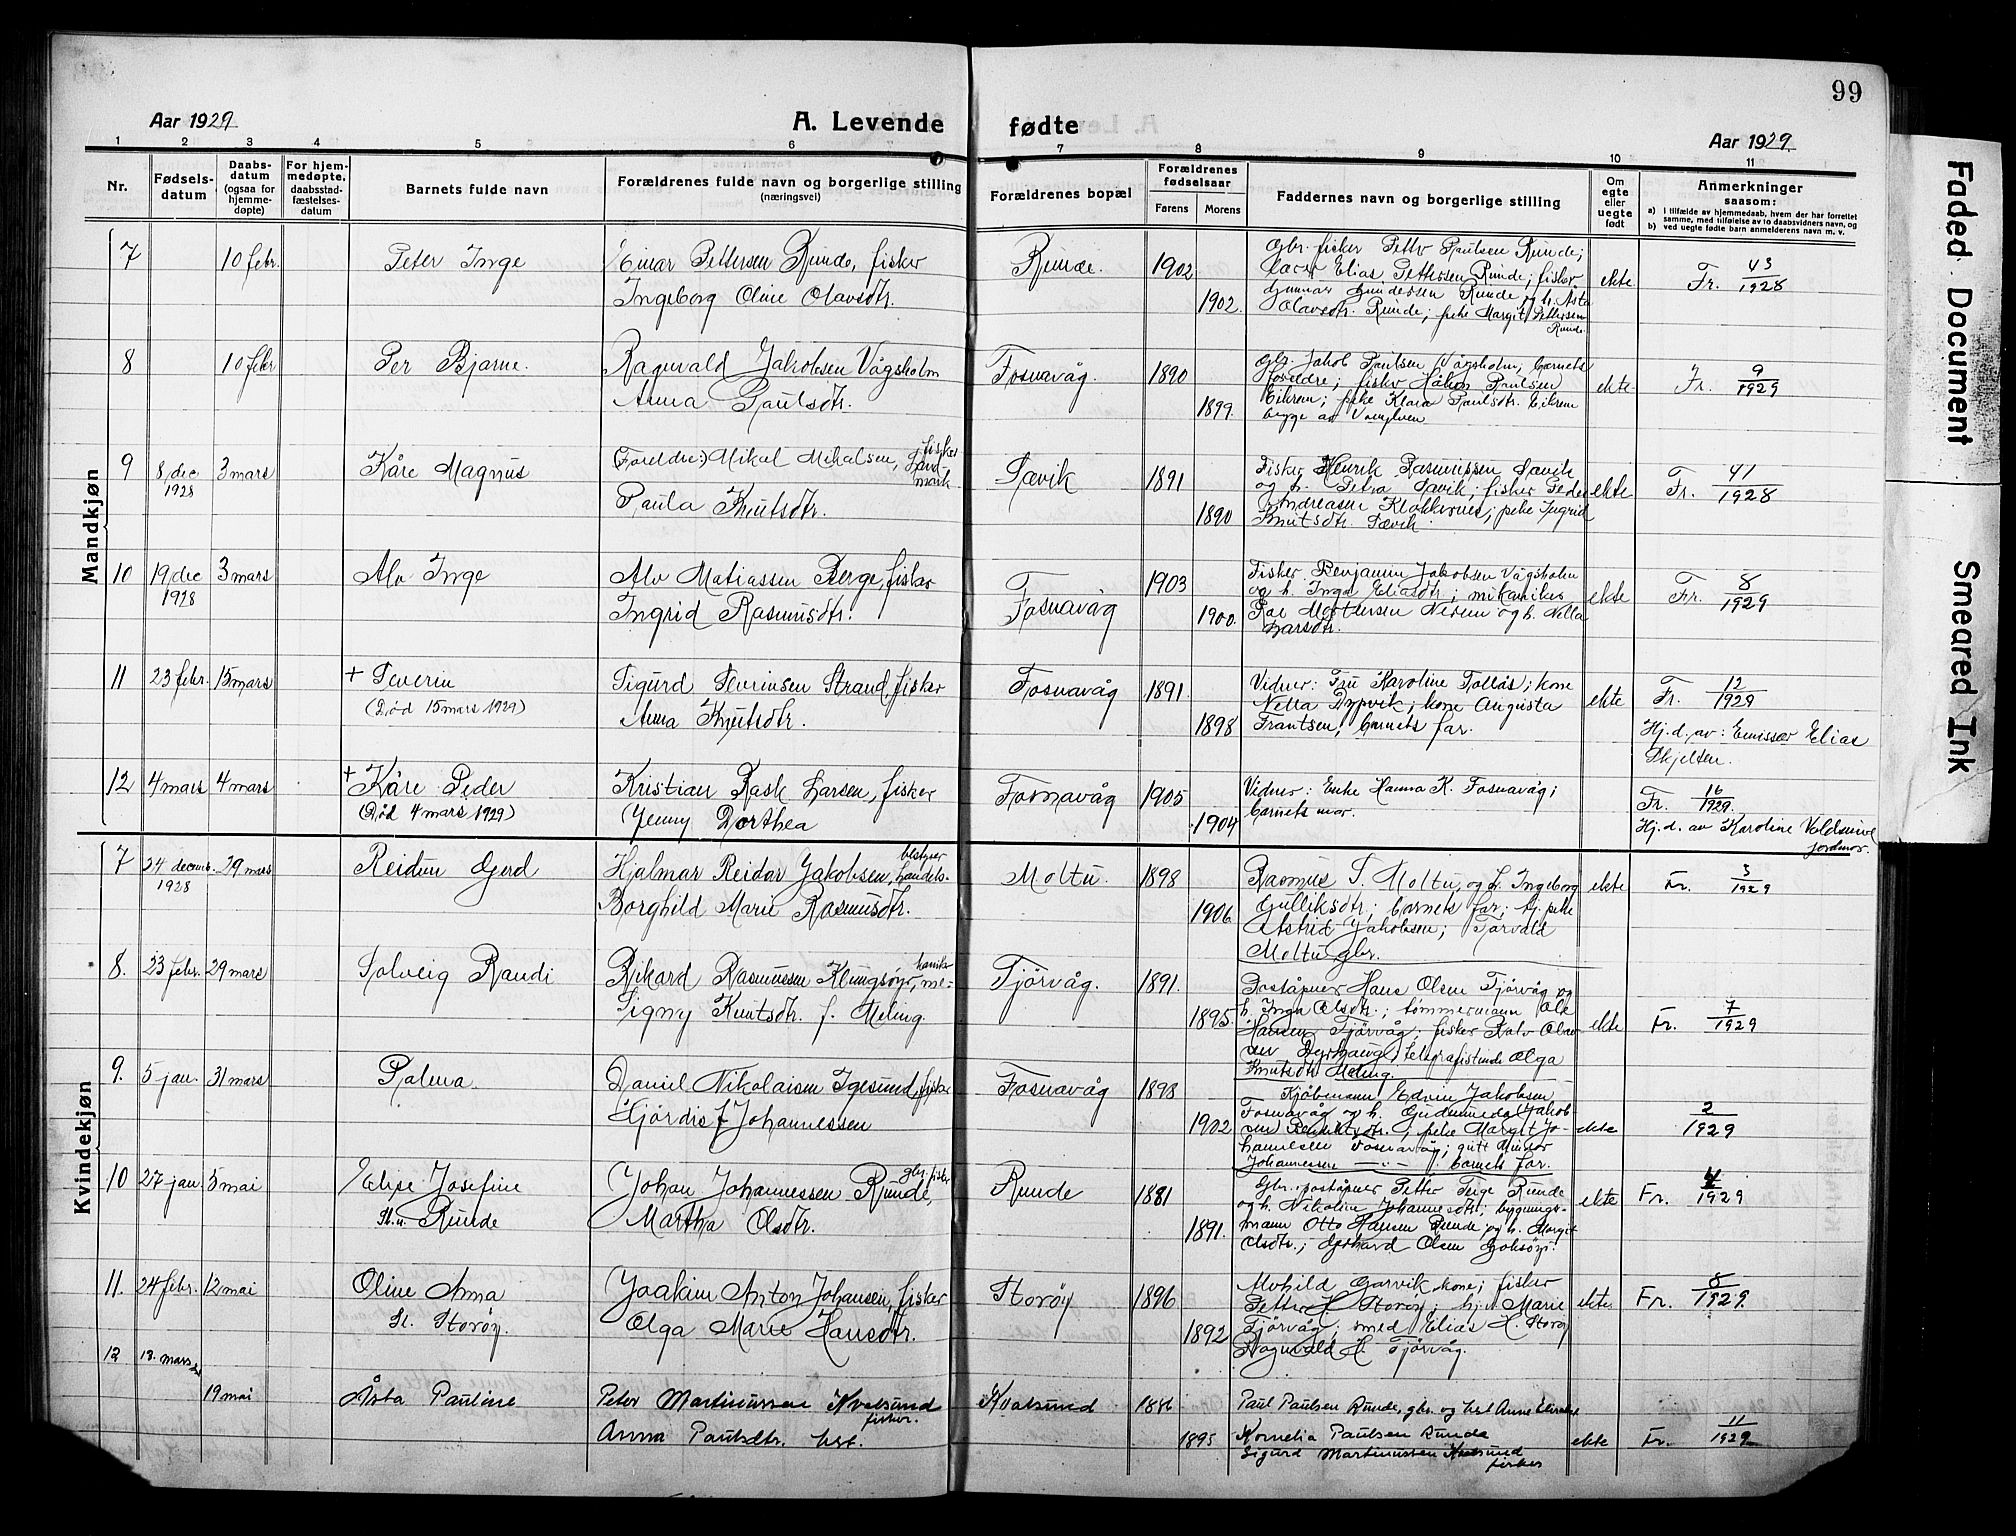 99
Aar 1929
A. Levende
fødte
Aar 1929.
1 2 3 4 5 6 7 8 9 10 11
Nr.
Fødsels-
datum
Daabs-
datum
(ogsaa for
hjemme-
døpte)
For hjem-
medøpte.
daabsstad-
fæstelses-
datum
Barnets fulde navn
Forældrenes fulde navn og borgerlige stilling
(næringsvei)
Forældrenes bopæl
Forældrenes
fødselsaar
Farens
Morens
Faddernes navn og borgerlige stilling
Om
egte
eller
uegte
født
Anmerkninger
saasom:
a) i tilfælde av hjemmedaab, hvem der har forrettet
samme, med tilføielse av to daabsvidners navn, og
b) ved uegte fødte barn anmelderens navn m. v.
Mandkjøn
7
10 febr.
Peter Inge
Einar Pettersen Runde, fisker
Ingeborg Oline Olavsdtr.
Runde.
1902
1902.
Gbr. fisker Petter Paulsen Runde;
Elias Pettersen Runde; fisker
Gunnar Gundersen Runde og h. Asta
Olavsdtr. Runde; pike Margit Pettersen
Runde.
ekte
Fr. 43/1928
8
10 febr
Per Bjarne.
Ragnvald Jakobsen Vågsholm
Anna Paulsdtr.
Fosnavåg.
1890
1899.
Gbr. Jakob Paulsen Vågsholm, barnets
foreldre; fisker Håkon Paulsen
Eikrem; pike Klara Paulsdtr. Eikrem
begge av Vanylven
ekte
Fr. 9/1929
9
8 dec
1928
3 mars
Kåre Magnus
(Foreldre:) Mikal Mikalsen, fisker
Sand-
mark.
Paula Knutsdtr.
Sævik
1891
1890
Fisker Henrik Rasmussen Sævik
og h. Petra Sævik; fisker Peder
Andreasen Klokkernes; pike Ingrid
Knutsdtr. Sævik.
ekte
Fr. 41/1928
10
19 dec
1928
3 mars
Alv Inge
Alv Matiassen Berge, fisker
Ingrid Rasmusdtr.
Fosnavåg
1903
1900.
Fisker Benjamin Jakobsen Vågsholm
og h. Inga Eliasdtr; mekaniker
og h. Nella
Larsdtr.
ekte
Fr. 8/1929
11
23 febr.
15 mars
+ Severin
(Død 15 mars 1929)
Sigurd Severinsen Strand, fisker
Anna Knutsdtr.
Fosnavåg
1891.
1898
Vidner: Fru Karoline Tollås; kone
Netta Dypvik; kone Augusta
Frantsen; barnets far.
ekte
Fr. 12/1929
Hj. d. av: Emissær Elias
Skjelten.
12
4 mars
4 mars
+ Kåre Peder
(Død 4 mars 1929)
Kristian Rask Larsen, fisker
Jenny Dorthea
Fosnavåg
1905
1904
Vidner: Enke Hanna K. Fosnavåg;
barnets mor.
Fr. 16/1929.
Hj. d. av Karoline Voldsnive
jordmor.
Kvindekjøn
7
24 decemb.
1928
29 mars
Reidun Gerd
Hjalmar Reidar Jakobsen, bestyrer
handels-
Borghild Marie Rasmusdtr.
Moltu.
1898
1906.
Rasmus S. Moltu, og h. Ingeborg
Gulliksdtr; barnets far; tj. pike
Astrid Jakobsen; Torvald
Moltu gbr.
ekte
Fr. 3/1929
8.
23 febr.
29 mars
Solveig Randi
Rikard Rasmussen Klungsøyr, me-
kaniker
Signy Knutsdtr. f. Meling.
Tjörvåg.
1891.
1895.
Poståpner Hans Olsen Tjörvåg og
h. Inga Olsdtr.; tømmermann Ole
Hansen Tjörvåg; fisker
telegrafistinde Olga
Knutsdtr Meling.
ekte
Fr. 7/1929
9.
5 jan.
31 mars
Palma.
Daniel Nikolaisen Igesund, fisker
Hjördis f. Johannessen
Fosnavåg
1898
1902
Kjøbmann Edvin Jakobsen
Fosnavåg og h. Gudmunda Jakob-
sen; pike Margit Jo-
hannessen Fosnavåg; gutt
Johannessen — " — . barnets far.
ekte
2/1929
10
27 jan
5 mai
Elise Josefine
St. n. Runde
Johan Johannessen Runde, gbr. fisker
Martha Olsdtr.
Runde
1881
1891.
Gbr. poståpner Petter Runde
og h. Nikoline Johannesdtr; bygnings-
mann Otto Hansen Runde og h. Margit
Olsdtr.; Gerhard Olsen Goksöyr.
ekte
Fr. 4/1929
11.
24 febr.
12 mai
Oline Anna
Sl. Storøy.
Joakim Anton Johansen, fisker
Olga Marie Hansdtr.
Storøy
1896
1892
kone; fisker
Petter H. Storøy; Marie
Tjörvåg; Elias H. Storøy
Ragnvald H. Tjörvåg.
ekte
Fr. 8/1929.
12
13. mars
19 mai
Åsta Pauline
Peter Martinussen Kvalsund
fisker.
Anna Paulsdtr.
Kvalsund
1886
1895
Paul Paulsen Runde, gbr. og Anne
Kornelia Paulsen Runde
Sigurd Martinussen Kvalsund
fisker
ekte
Fr. 11/1929
Faded Document
Smeared Ink